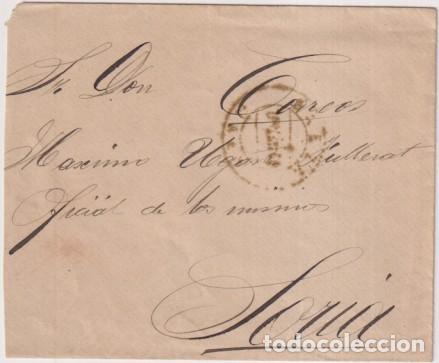 Sr. Don
Correos
Maximo
Oficial de los mismos
Soria
todocoleccion.net